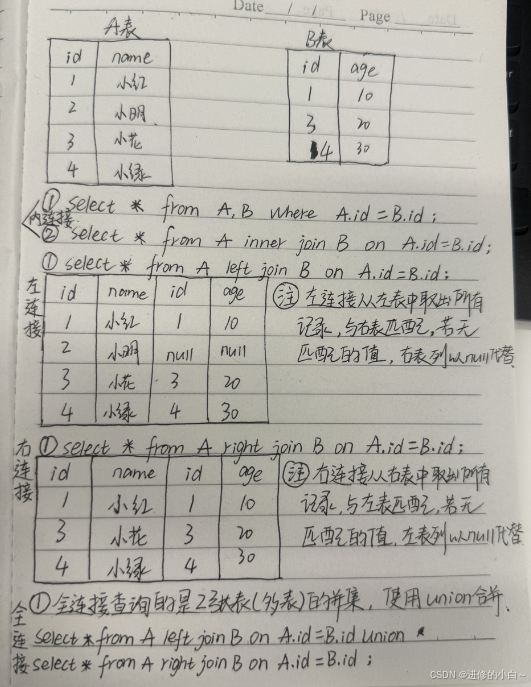 Date / /
Page
A表
id name
1 小红
2 小明
3 小花
4 小绿
B表
id age
1 10
3 20
4 30
内连接
① select * from A, B where A.id = B.id ;
② select * from A inner join B on A.id=B.id;
左连接
① select * from A left join B on A.id=B.id;
id name id age
1 小红 1 10
2 小明 null null
3 小花 3 20
4 小绿 4 30
注 左连接从左表中取出所有
记录,与右表匹配,若无
匹配的值,右表列以null代替
右连接
① select * from A right join B on A.id=B.id;
id name id age
1 小红 1 10
3 小花 3 20
4 小绿 4 30
注 右连接从右表中取出所有
记录,与左表匹配,若无
匹配的值,左表列以null代替
全连接
① 全连接查询的是2张表(多表)的并集,使用union合并.
select * from A left join B on A.id=B.id union
select * from A right join B on A.id=B.id ;
CSDN @进修的小白~